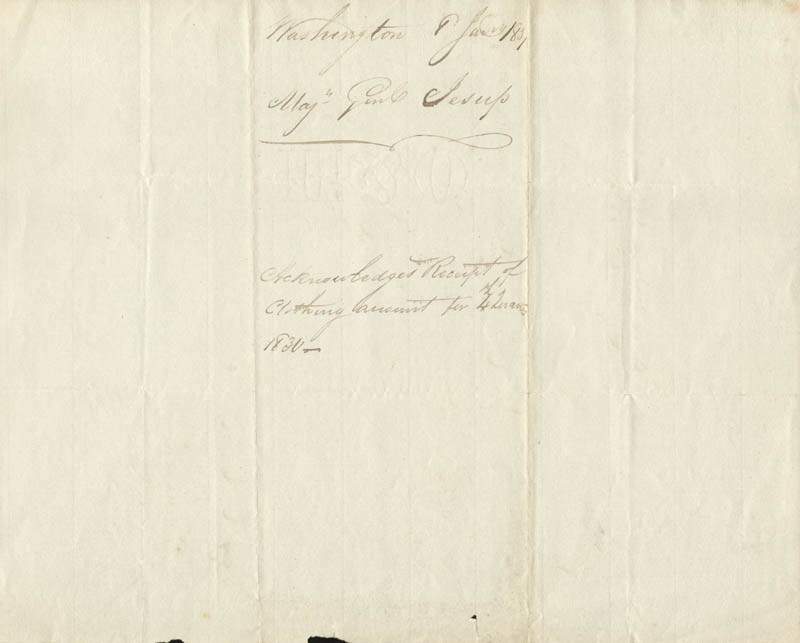 Washington 8 Jany 183
Majr Genl Jesup
Acknowledges Receipt of
Clothing account for 4
1830